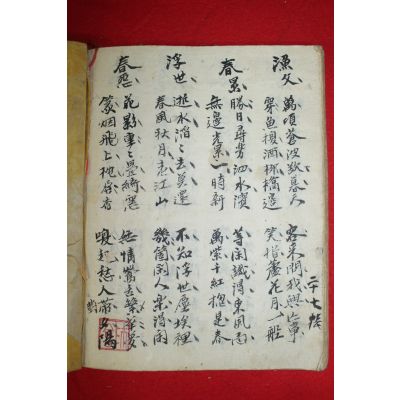 漁父
萬頃蒼波欲暮天
客來問我興亡事
穿魚換酒柳橋邊
笑指蘆花月一船
春景
勝日尋芳泗水濱
等閑識得東風面
無邊光景一時新
萬紫千紅摠是春
浮世
逝水滔々去莫還
不知浮世塵埃裡
春風秋月江山
幾箇閑人樂得閑
春怨
花影重々疊綺窓
無情鶯
篆烟飛上枕屛香
喚起愁人夕陽
二十七